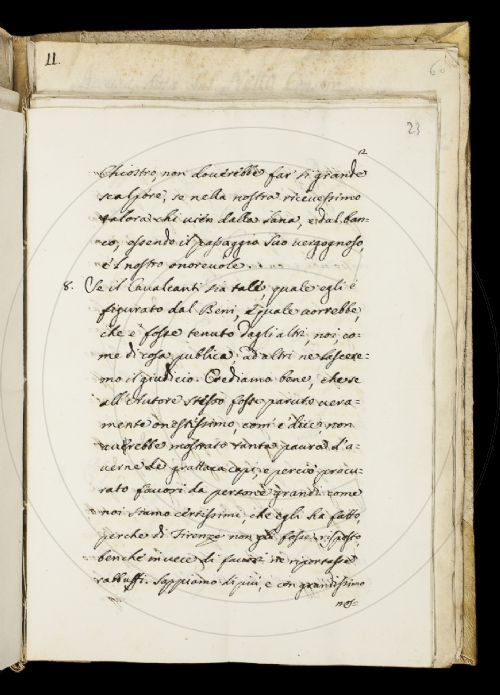 11.
60
23
12
Chiostro, non dovérebbe far si grande
scalpore, se nella nostra ricevessimo
talora chi vità dalla lana, e dal ban-
co, essendo il passaggio suo vergognoso,
è l nostro onorevole.
8. Se il Cavalcanti sia tale, quale egli è
figurato dal Beni, e quale vorrebbe,
che è fosse tenuto dagli altri, noi co-
me di cosa publica, ad altri ne lascere-
mo il giudicio. Crediamo bene, che se
all'Autore stesso fosse paruto vera-
mente onestissimo, com' è dice, non
avrebbe mostrato tanta paura d'a-
verne de grattaca capi, e perciò procu-
rato favori da persone grandi come
noi siamo certissimi, che egli ha fatto,
perche di Firenze non gli fosse risposto
benche in vece di favori ne riportasse
rabbuffi. Sappiamo di più, e con grandissimo
nos-